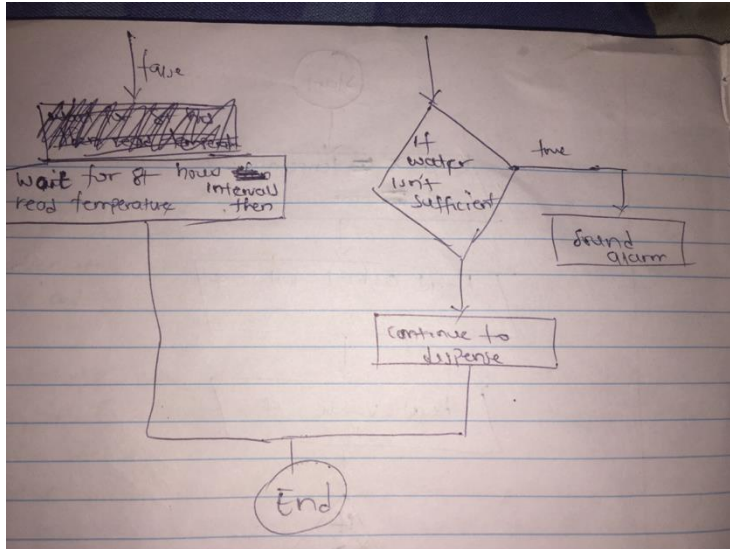 false
wait for 8t hour
interval
read temperature then
if
water
isn't
sufficient
true
Sound
alarm
continue to
dispense
End